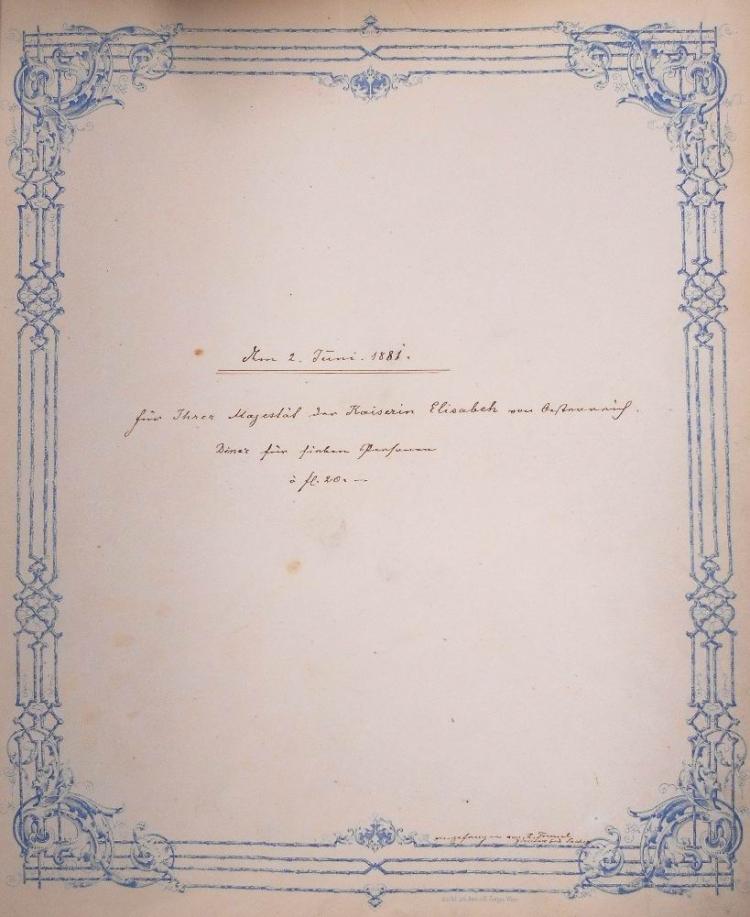 Am 2. Juni. 1881.
für Ihrer Majestät der Kaiserin Elisabeth von Oesterreich.
Diner für sieben Personen
à fl. 20. —